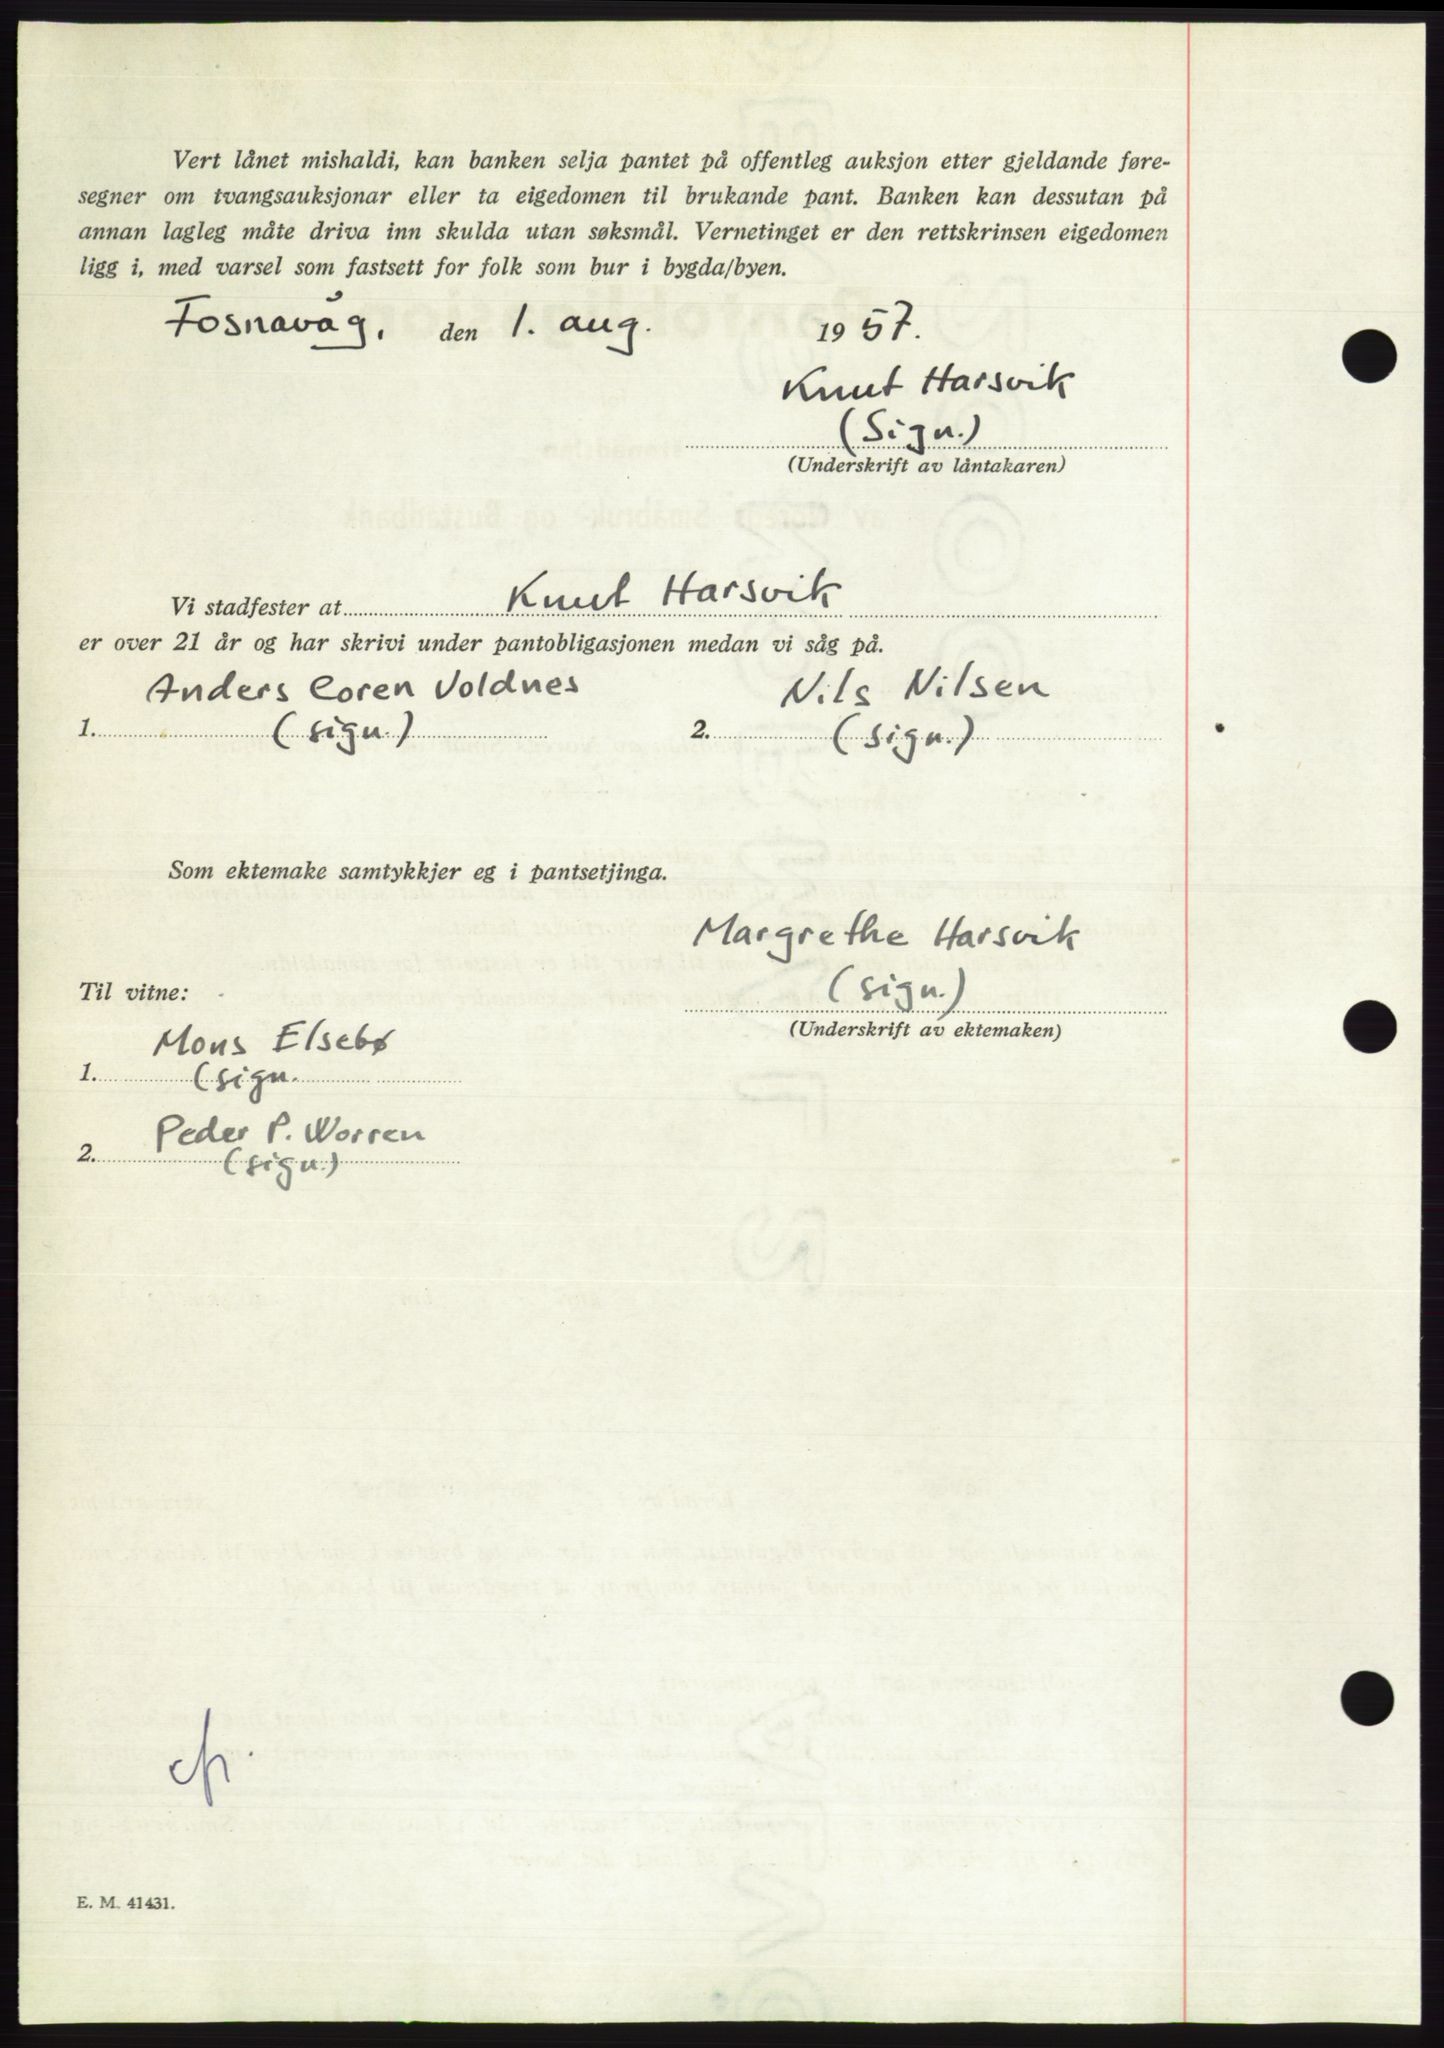 Vert lånet mishaldi, kan banken selja pantet på offentleg auksjon etter gjeldande føre-
segner om tvangsauksjonar eller ta eigedomen til brukande pant. Banken kan dessutan på
annan lagleg måte driva inn skulda utan søksmål. Vernetinget er den rettskrinsen eigedomen
ligg i, med varsel som fastsett for folk som bur i bygda/byen.
Fosnavåg, den 1. aug. 1957.
Knut Harsvik
(Sign.)
(Underskrift av låntakaren)
Vi stadfester at Knut Harsvik
er over 21 år og har skrivi under pantobligasjonen medan vi såg på.
Anders Coren Voldnes Nils Nilsen
1. (sign.) 2. (sign.)
Som ektemake samtykkjer eg i pantsetjinga.
Margrethe Harsvik
Til vitne: (sign.)
(Underskrift av ektemaken)
Mons Elsebø
1. (sign.
Peder P. Worren
2. (sign.)
E. M. 41431.